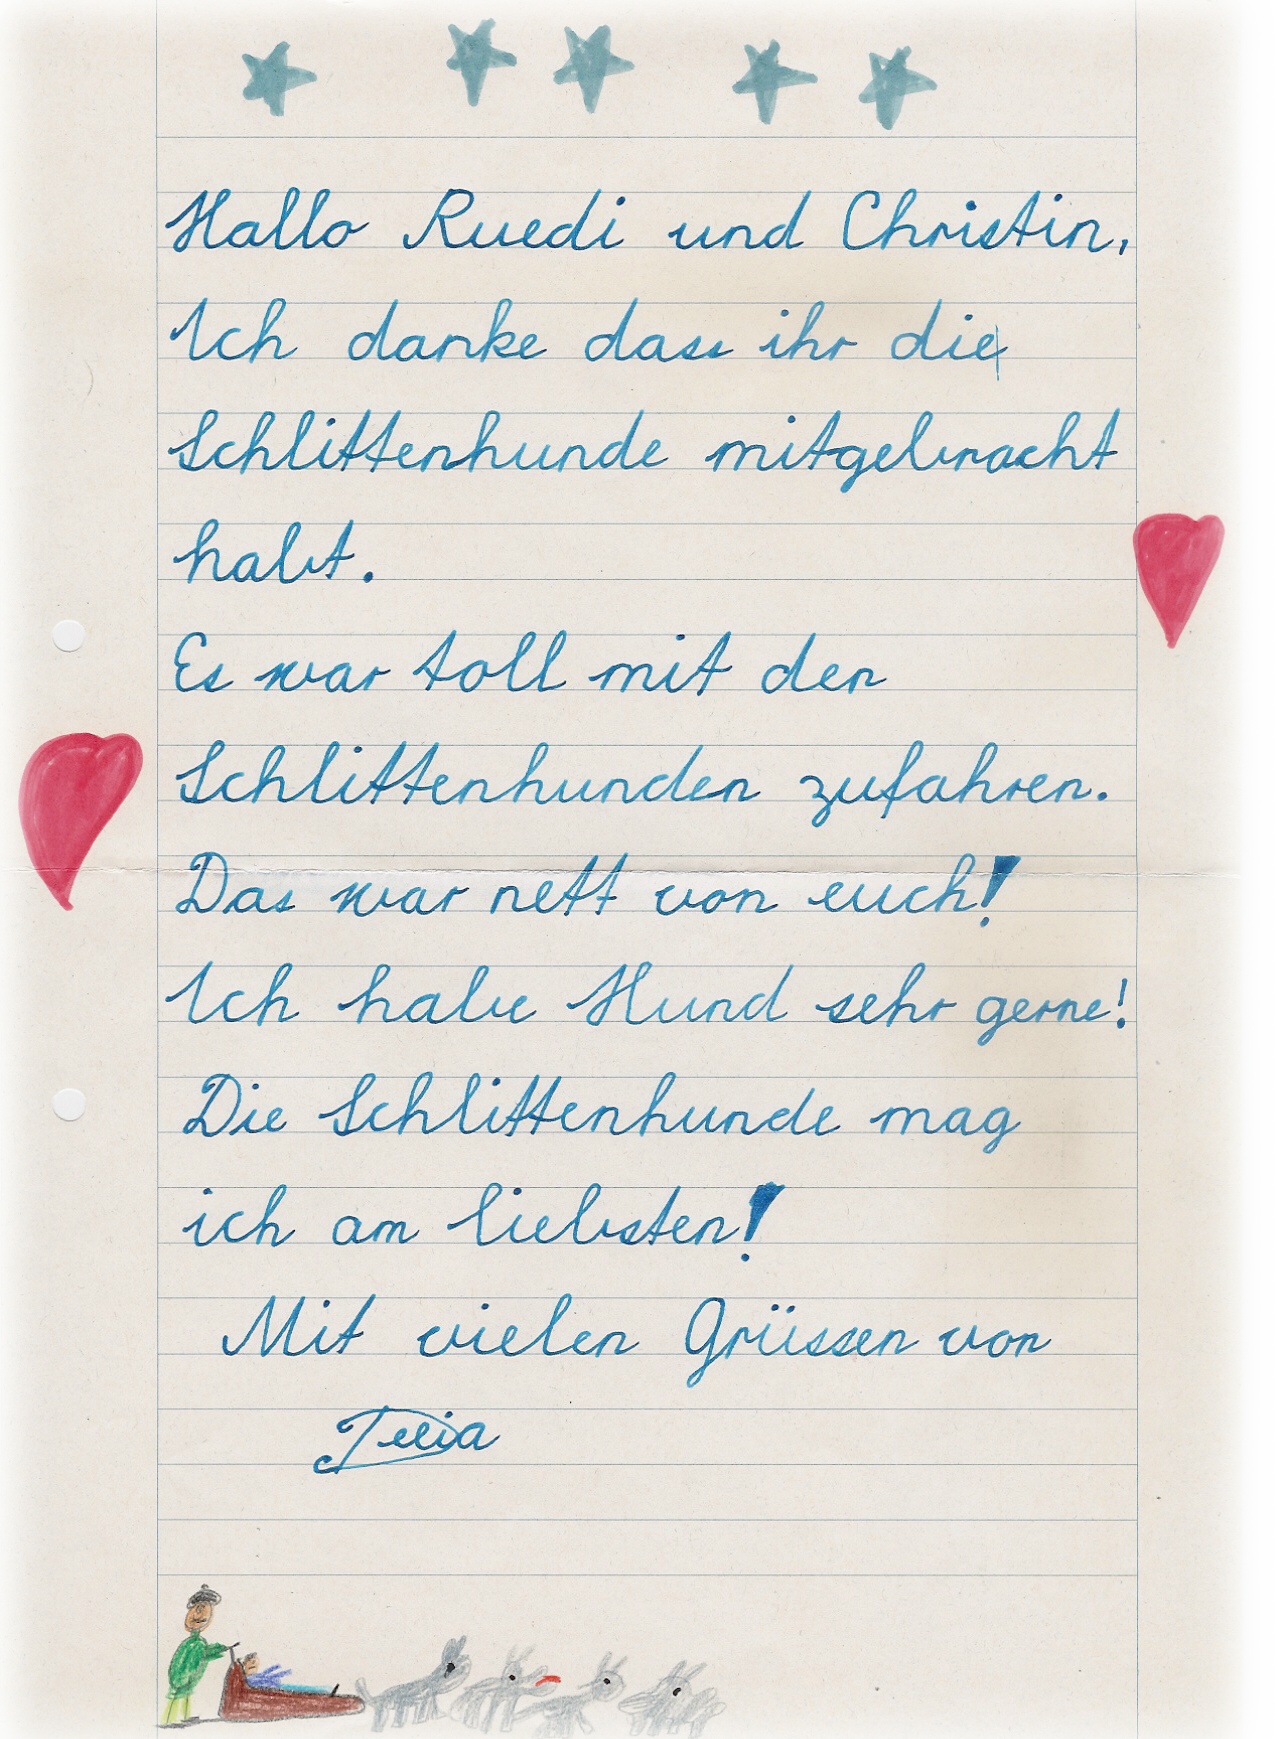 Hallo Ruedi und Christin,
Ich danke dass ihr die
Schlittenhunde mitgebracht
habt.
Es war toll mit den
Schlittenhunden zufahren.
Das war nett von euch!
Ich habe Hund sehr gerne!
Die Schlittenhunde mag
ich am liebsten!
Mit vielen Grüssen von